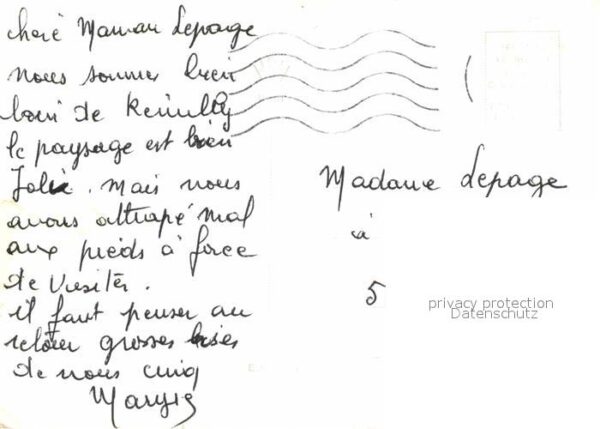 cheré Maman Lepage
nous sommes bien
loin de Reuilly
le paysage est bien
Jolie. Mais nous
avons attrapé mal
aux pieds à force
de Visiter.
il faut penser au
retour grosses bises
de nous cinq
Madame Lepage
à
5
privacy protection
Datenschutz